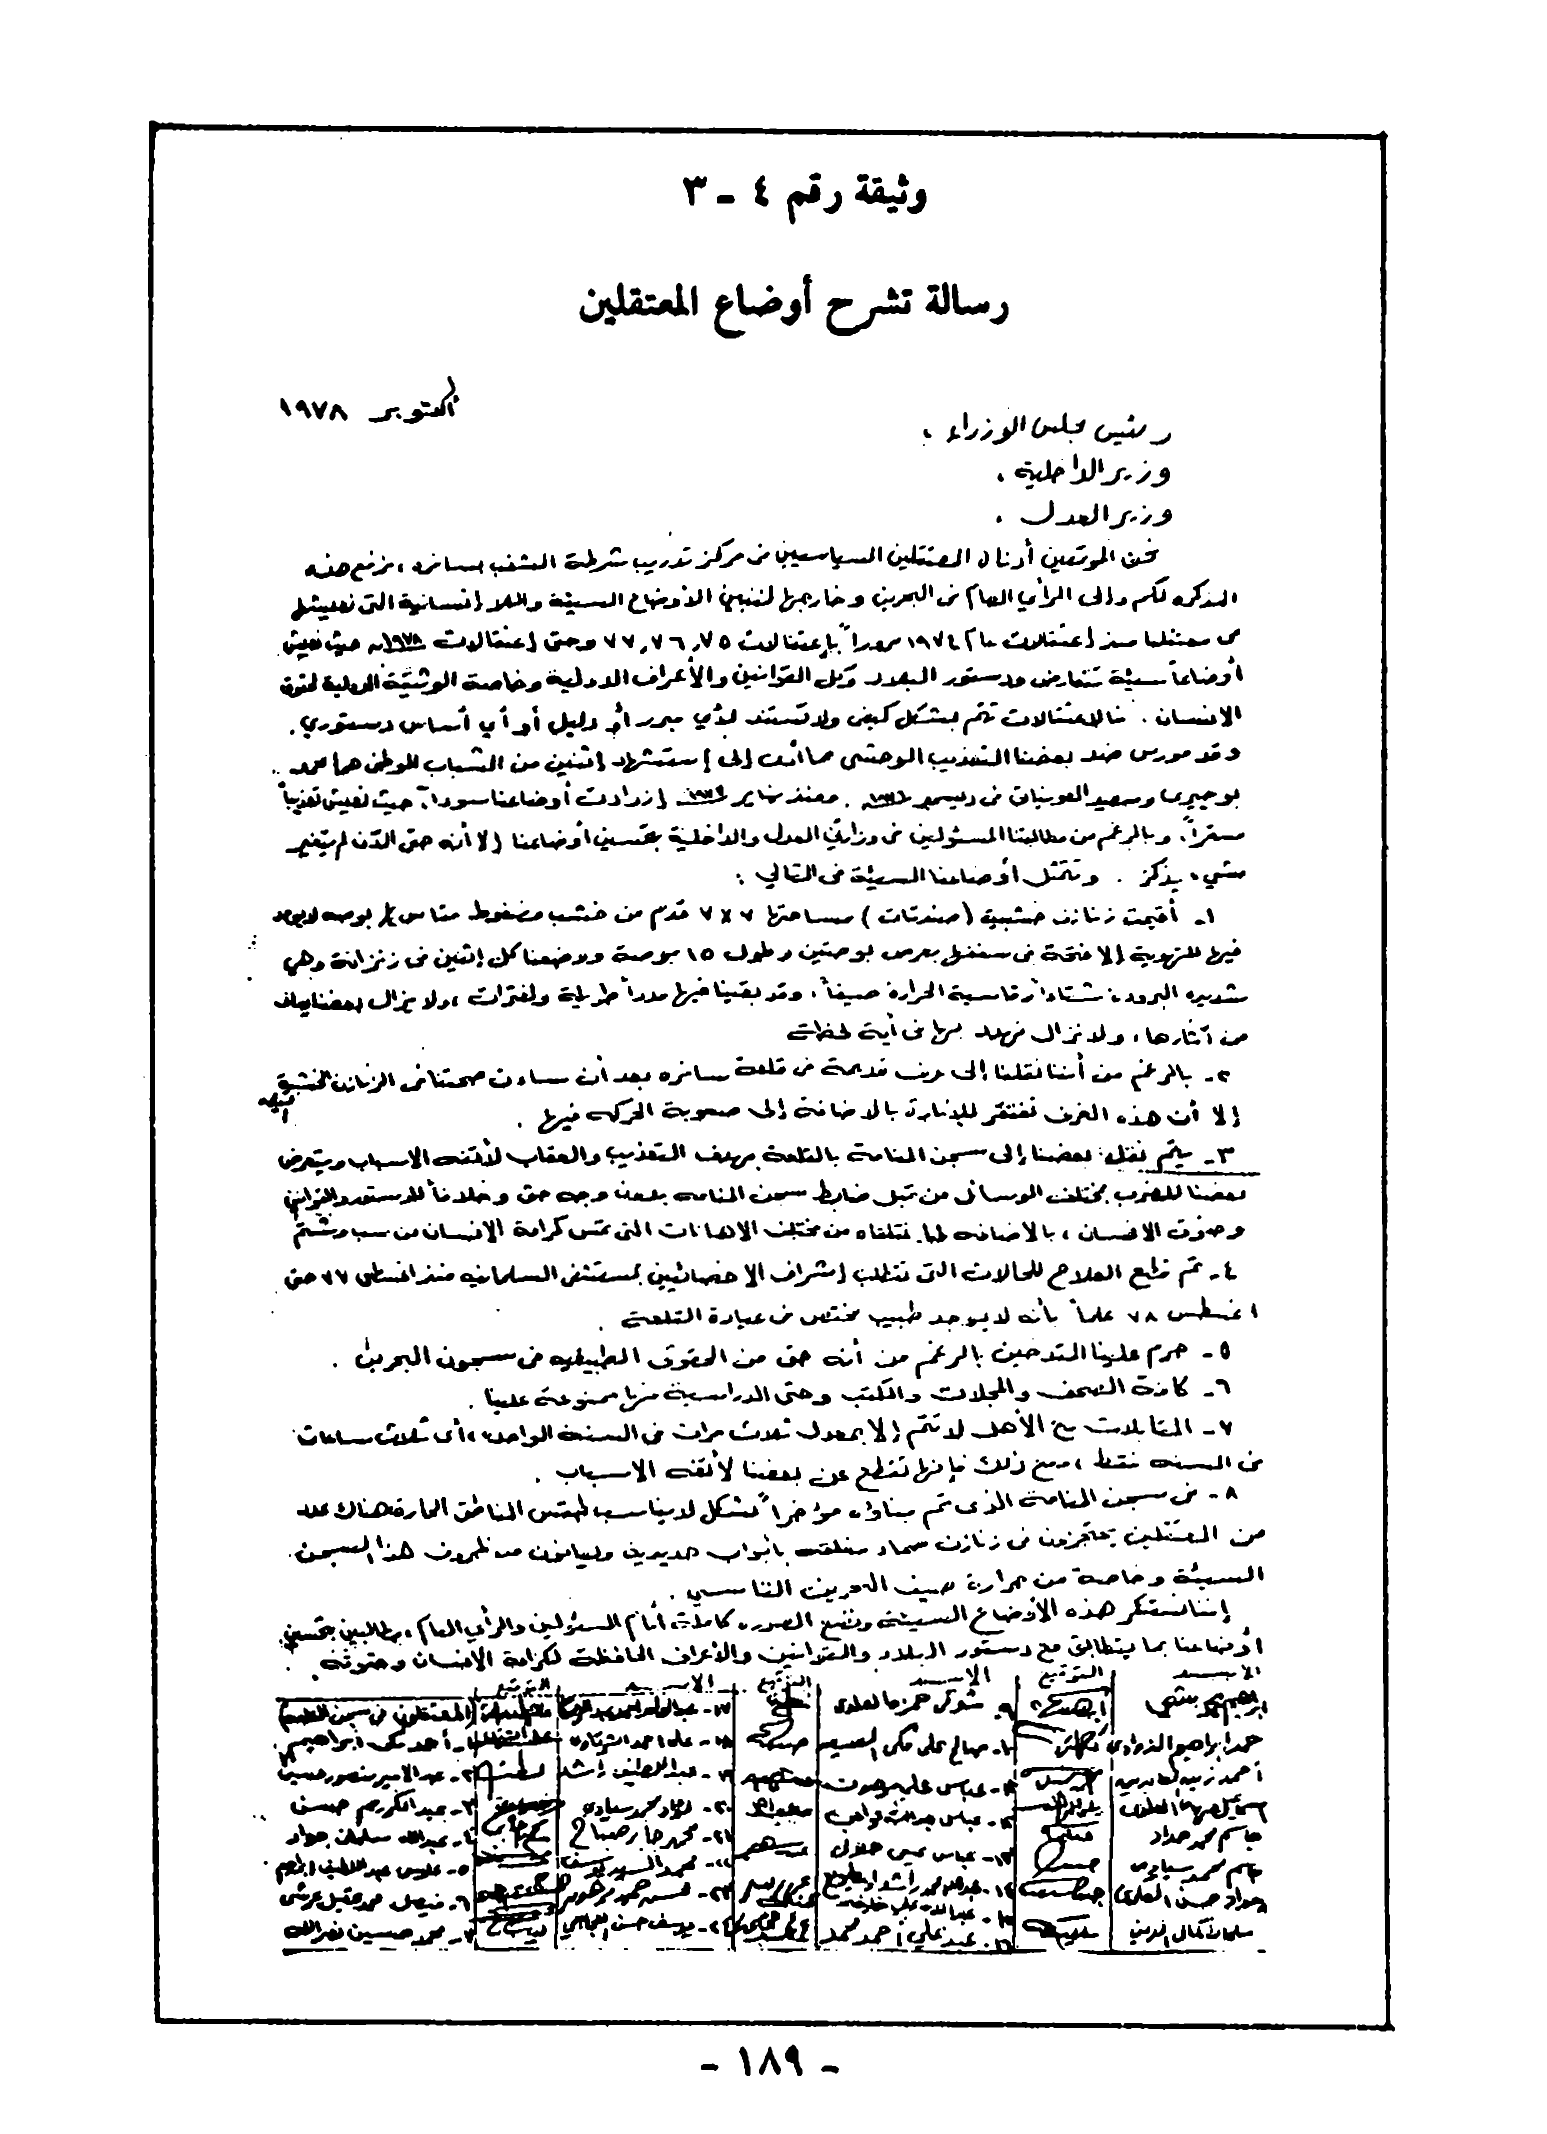 وثيقة رقم ٤ - ٣
رسالة تشرح أوضاع المعتقلين
أكتوبر ١٩٧٨
رئيس مجلس الوزراء ،
وزير الداخلية ،
وزير العدل ،
نحن الموقعين أدناه المعتقلين السياسيين في مركز تدريب شرطة الشغب بسافره ، نرفع هذه
المذكره لكم وإلى الرأي العام في البحرين وخارجها لنبين الأوضاع السيئة واللا إنسانية التي نعيشها
في معتقلنا منذ إعتقالات عام ١٩٧٤ مروراً بإعتقالات ٧٥ ، ٧٦ ، ٧٧ وحتى إعتقالات ١٩٧٨ حيث نعيش
أوضاعاً سيئة تتعارض ودستور البلاد وكل القوانين والأعراف الدولية وخاصة الوثيقة الدولية لحقوق
الانسان . فالاعتقالات تتم بشكل كيفي ولا تستند لأي مبرر أو دليل أو أي أساس دستوري .
وقد مورس ضد بعضنا التعذيب الوحشي مما أدى إلى إستشهاد إثنين من الشباب الوطني هما محمد
بوجيري وسعيد العوينات في ديسمبر ١٩٧٦ . ومنذ يناير إزدادت أوضاعنا سوداً حيث نعيش تعذيباً
مستمراً ، وبالرغم من مطالبتنا المسئولين في وزارتي العدل والداخلية بتحسين أوضاعنا إلا أنه حتى الآن لم يتغير
شيء يذكر . وتتمثل أوضاعنا السيئة في التالي :
١ - أقيمت زنازن خشبية (صندقات) مساحتها ٧ × ٧ قدم من خشب مضغوط مقاس بوصه لايوجد
فيها للتهوية إلا فتحة في سقفها بعرض بوصتين وطول ١٥ بوصة ووضعنا كل إثنين في زنزانة وهي
شديده البرودة شتاءاً وقاسية الحرارة صيفاً ، وقد بقينا فيها مدداً طويلة ولفترات ، ولا يزال بعضنا يعاني
من آثارها ، ولا نزال نهدد بها في أية لحظة
٢ - بالرغم من أننا نقلنا إلى غرف قديمة في قلعة سافره بعد أن ساءت صحتنا في الزنازن الخشبية
إلا أن هذه الغرف تفتقر للإنارة بالاضافة إلى صعوبة الحركه فيها .
٣ - يتم نقل بعضنا إلى سجن المنامة بالقلعة بهدف التعذيب والعقاب لأتفه الاسباب ويتعرض
بعضنا للضرب بمختلف الوسائل من قبل ضابط سجن المنامه بدون وجه حق وخلافاً للدستور والقوانين
وحقوق الانسان ، بالاضافه لما نتلقاه من مختلف الاهانات التي تمس كرامة الإنسان من سب وشتم
٤ - تم قطع العلاج للحالات التي تتطلب إشراف الاخصائيين بمستشفى السلمانيه منذ اغسطس ٧٧ حتى
اغسطس ٧٨ علماً بأنه لا يوجد طبيب مختص في عيادة القلعة .
٥ - حرم علينا التدخين بالرغم من أنه حق من الحقوق الطبيعيه في سجون البحرين .
٦ - كافة الصحف والمجلات والكتب وحتى الدراسية منها ممنوعة علينا .
٧ - المقابلات مع الأهل لا تتم إلا بمعدل ثلاث مرات في السنة الواحدة ، أي ثلاث ساعات
في السنه فقط ، ومع ذلك فإنها تقطع عن بعضنا لأتفه الاسباب .
٨ - في سجن المنامة الذي تم بناؤه مؤخراً بشكل لا يناسب طقس المناطق الحارة هناك عدد
من المعتقلين يحتجزون في زنازن صماء مغلقة بابواب حديدية ويعانون من ظروف هذا السجن
السيئة وخاصة من حرارة صيف البحرين القاسي .
إننا نستنكر هذه الأوضاع السيئة ونضع الصوره كاملة أمام المسؤلين والرأي العام ، مطالبين بتحسين
أوضاعنا بما يتطابق مع دستور البلاد والقوانين والأعراف الحافظة لكرامة الإنسان وحقوقه .
الاســـم التوقيع الاســـم التوقيع الاســـم التوقيع
ابراهيم محمد بشمي
٩ - شوكى حمزه العلوي
المعتقلون في سجن القلعة
حمد ابراهيم الذوادي
١٠ - صالح علي مكي
١٨ - علي احمد الشرقاوي
١ - أحمد مكي ابراهيم
١١ - عباس علي مرهون
١٩ - عبد اللطيف راشد
٢ - عبد الامير منصور حسين
١٢ - عباس عبدالله
٢٠ - فؤاد محمد سيادي
٣ - عبد الكريم حسن
جاسم محمد حداد
١٣ - عباس عيسى هلال
٢١ - محمد جابر صباح
٤ - عبدالله سلمان جواد
جاسم محمد سيادي
١٤ - عبدالله محمد راشد
٢٢ - محمد السيد يوسف
٥ - علوي عبد اللطيف
جواد حسن العلوي
٢٣ - محسن حميد مرهون
٦ - فيصل محمد عقيل عرشي
سلمان كمال الدين
١٦ - عبد علي أحمد محمد
٢٤ - يوسف حسن العجاجي
٧ - محمد حسين نصر الله
- ١٨٩ -